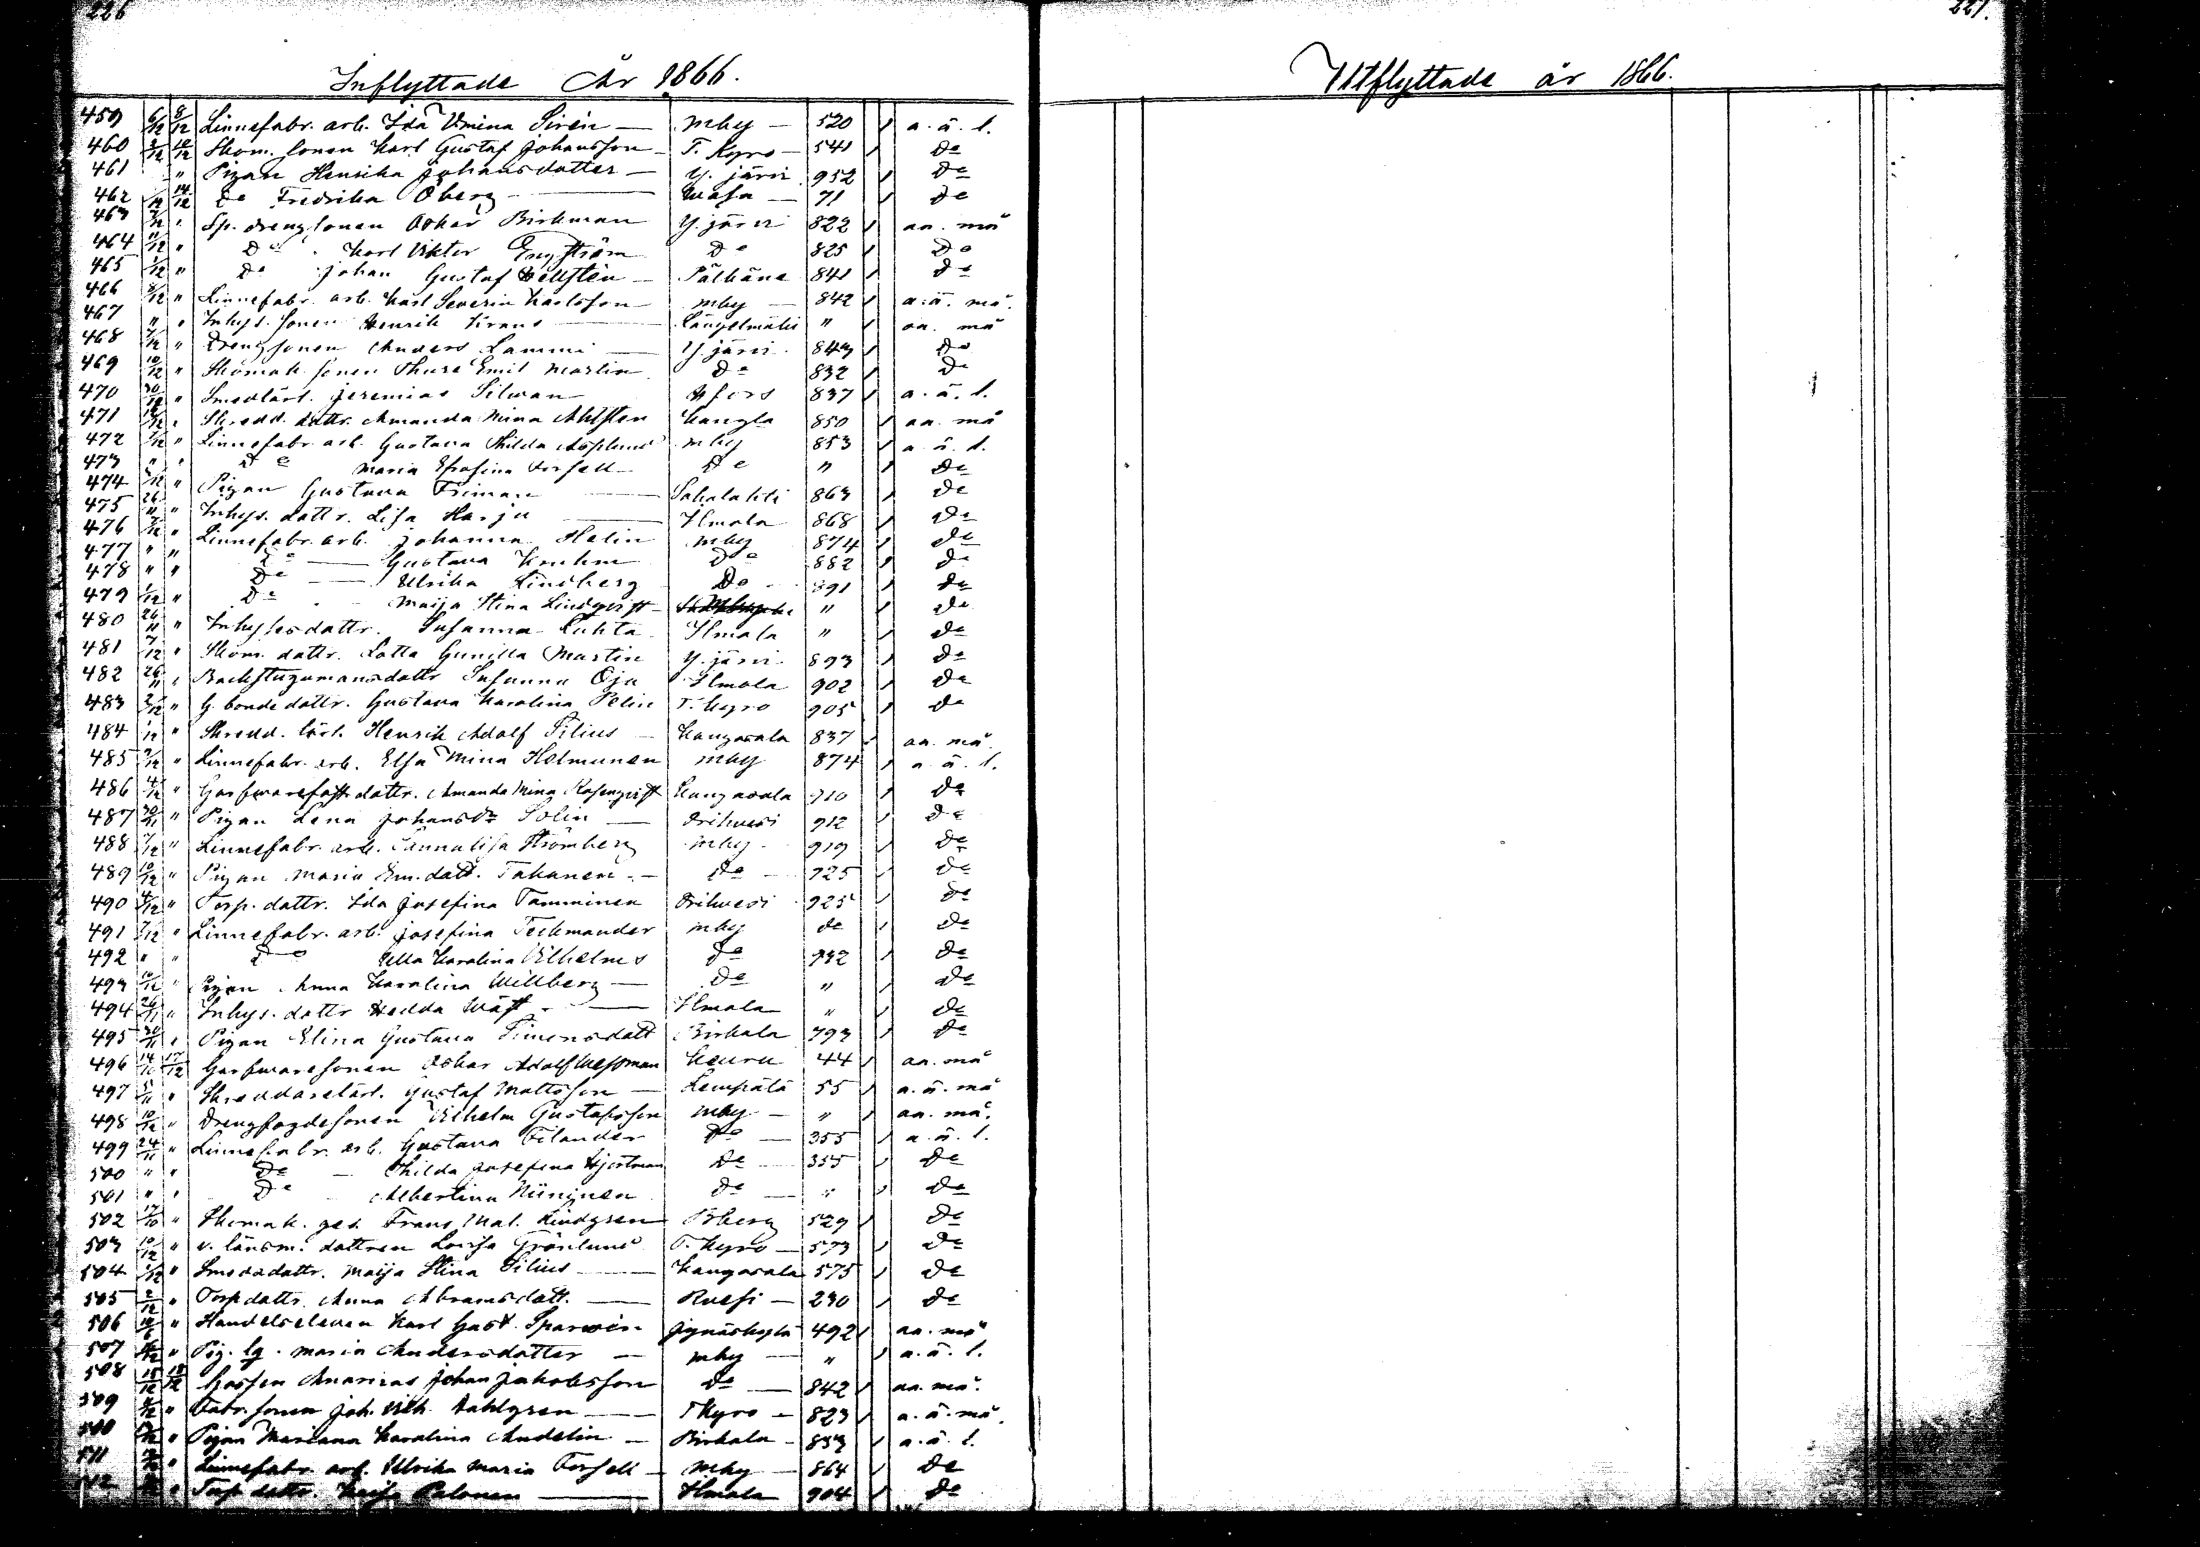 226
Inflyttade År 1866.
459 6/12 8/12 Linnefabr. arb. Ida Vmina Sirén — mby — 520 a. ä. l.
460 3/12 10/12 Skom. sonen Karl Gustaf Johansson — T. Kyro — 541 Do
461 " Pigan Henrika Johansdotter — Y. järvi 952 Do
462 14/12 Do Fredrika Öberg — Wasa — 71 Do
463 7/12 " Sp. drengsonen Oskar Birkman Y. järvi 822 aa. må
464 11/12 " Do Karl Viktor Engström Do 825 Do
465 1/12 " Do Johan Gustaf Hellstén — Pälkäne 841 Do
466 8/12 " Linnefabr. arb. Karl Severin Karlsson — mby — 842 a. ä. må.
467 " " Inhys. sonen Henrik Krans — Längelmäki " aa. må
468 7/12 " Drengsonen Anders Lammi — Y. järvi 843 Do
469 10/12 " Skomak. sonen Thure Emil Martin Do 832 Do
470 30/11 " Smedlärl. Jeremias Silwan — Hfors 837 a. ä. l.
471 12/12 " Skredd. dottr. Amanda Mina Ahlsten Kangla 850 aa. må
472 7/12 " Linnefabr. arb. Gustava Thilda Asplund mby 853 a. ä. l.
473 " " Do Maria Efrosina Forsell — Do " Do
474 /12 " Pigan Gustava Friman — Sahalahti 863 Do
475 26/11 " Inhys. dottr. Lisa Harju — Ilmola 868 Do
476 7/12 " Linnefabr. arb. Johanna Helin mby 874 Do
477 " " Do — Gustava Do 882 Do
478 " " Do — Ulrika Lindberg Do 891 Do
479 1/12 " Do Maija Stina Lindqvist — " Do
480 26/11 " Inhysesdottr. Susanna Luhta Ilmola " Do
481 7/12 " Skom. dottr. Lotta Gunilla Martin Y. järvi 893 Do
482 26/11 " Backstugumansdottr Susanna Oja Ilmola 902 Do
483 2/12 " G. bonde dottr. Gustava Karolina Pelin T. Kyro 905 Do
484 1/12 " Skredd. lärl. Henrik Adolf Silius — Kangasala 837 aa. må.
485 7/12 " Linnefabr. arb. Elsa Mina Helmunen mby 874 a. ä. l.
486 4/12 " Garfwaredottr. Amanda Mina Rosenqvist Kangasala 910 Do
487 30/11 " Pigan Lena Johansdr Solin — Orihvesi 912 Do
488 7/12 " Linnefabr. arb. Sannalisa Strömberg mby 919 Do
489 10/12 " Pigan Maria Em. dott. Takanen — Do — 925 Do
490 4/12 " Torp. dottr. Ida Josefina Tamminen Orihvesi 925 Do
491 7/12 " Linnefabr. arb. Josefina Teckmander mby do Do
492 " " Do Ulla Karolina Vilhelms Do 932 Do
493 10/12 " Pigan Anna Karolina Willberg — Do " Do
494 26/11 " Inhys. dottr Hedda Wäst — Ilmola " Do
495 30/11 " Pigan Elina Gustava Simonsdott Birkala 793 Do
496 14/11 17/12 Garfwaresonen Oskar Adolf Wessman Keuru 44 aa. må
497 5/11 " Skreddarelärl. Gustaf Mattsson — Lempälä 55 a. ä. må
498 10/12 " Drengfogdesonen Vilhelm Gustafsson mby — " aa. må.
499 24/11 " Linnefabr. arb. Gustava Filander Do — 355 a. ä. l.
500 " " Do — Thilda Josefina Hjortman Do — 355 Do
501 " " Do Albertina Niininen Do — " Do
502 17/10 " Skomak. ges. Frans Mat. Lindgren Bberg 529 Do
503 10/12 " v. länsm. dottren Lovisa Grönlund T. Kyro — 573 Do
504 1/12 " Smedsdottr. Maija Stina Silius — Kangasala 575 Do
505 2/12 " Torp dottr. Anna Abramsdott. — Ruesi — 230 Do
506 " Handelseleven Karl Gust. Sparwin Jyväskylä 492 aa. må
507 /12 " Pig. lg. Maria Andersdotter — mby — " a. ä. l.
508 15/12 18/12 Gossen Ananias Johan Jakobsson Do — 842 aa. må.
509 /12 " Fabr. sonen Joh. Vilh. Dahlgren — T Kyro — 823 a. ä. må.
" Pigan Mariana Karolina Andelin — Birkala — 853 a. ä. l.
511 " Linnefabr. arb. Ulrika Maria Forsell — mby — 864 Do
" Torp dottr. Kaisa Palonen — Ilmola — 904 Do
221.
Utflyttade år 1866.